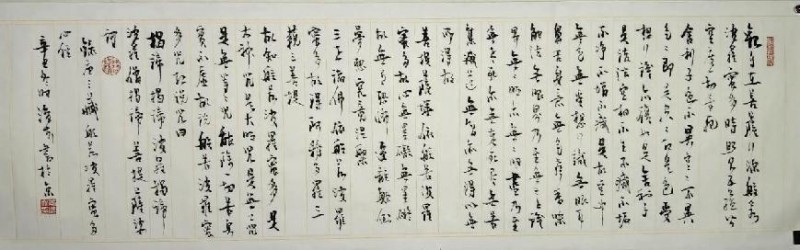 觀自在菩薩行深般若
波羅蜜多時照見五蘊皆
空度一切苦厄
舍利子色不異空空不異
色色即是空空即是色受
想行識亦復如是舍利子
是諸法空相不生不滅不垢
不淨不增不減是故空中
無色無受想行識無眼耳
鼻舌身意無色聲香味
觸法無眼界乃至無意識
界無無明亦無無明盡乃至
無老死亦無老死盡無苦
集滅道無智亦無得以無
所得故
菩提薩埵依般若波羅
蜜多故心無罣礙無罣礙
故無有恐怖遠離顛倒
夢想究竟涅槃
三世諸佛依般若波羅
蜜多故得阿耨多羅三
藐三菩提
故知般若波羅蜜多是
大神咒是大明咒是無上咒
是無等等咒能除一切苦真
實不虛故說般若波羅蜜
多咒即說咒曰
揭諦揭諦波羅揭諦
波羅僧揭諦菩提薩婆
訶
錄唐三藏般若波羅蜜多
心經
辛丑 書於京